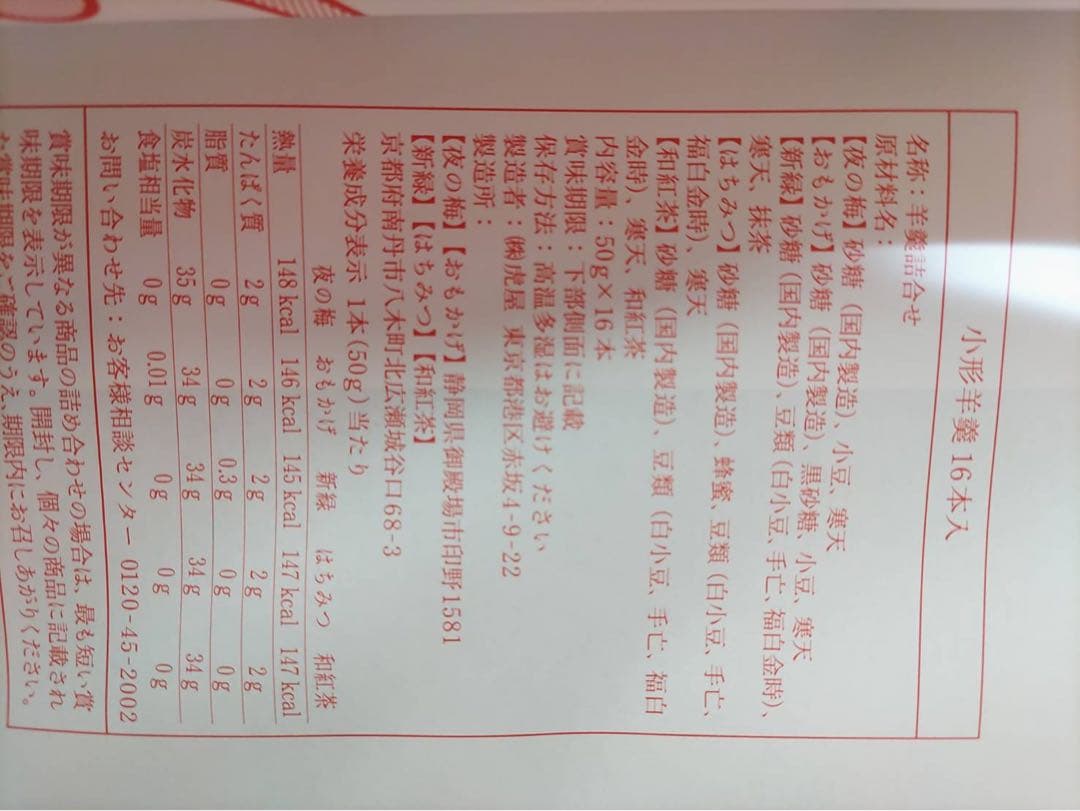 小形羊羹16本入
名称：羊羹詰合せ
原材料名：
【夜の梅】砂糖（国内製造）、小豆、寒天
【おもかげ】砂糖（国内製造）、黒砂糖、小豆、寒天
【新緑】砂糖（国内製造）、豆類（白小豆、手亡、福白金時）、
寒天、抹茶
【はちみつ】砂糖（国内製造）、蜂蜜、豆類（白小豆、手亡、
福白金時）、寒天
【和紅茶】砂糖（国内製造）、豆類（白小豆、手亡、福白
金時）、寒天、和紅茶
内容量：50g×16本
賞味期限：下部側面に記載
保存方法：高温多湿はお避けください
製造者：㈱虎屋 東京都港区赤坂4-9-22
製造所：
【夜の梅】【おもかげ】静岡県御殿場市印野1581
【新緑】【はちみつ】【和紅茶】
京都府南丹市八木町北広瀬城谷口68-3
栄養成分表示 1本(50g)当たり
夜の梅 おもかげ 新緑 はちみつ 和紅茶
熱量 148kcal 146kcal 145kcal 147kcal 147kcal
たんぱく質 2g 2g 2g 2g 2g
脂質 0g 0g 0.3g 0g 0g
炭水化物 35g 34g 34g 34g 34g
食塩相当量 0g 0.01g 0g 0g 0g
お問い合わせ先：お客様相談センター 0120-45-2002
賞味期限が異なる商品の詰め合わせの場合は、最も短い賞
味期限を表示しています。開封し、個々の商品に記載され
た賞味期限をご確認のうえ、期限内にお召しあがりください。